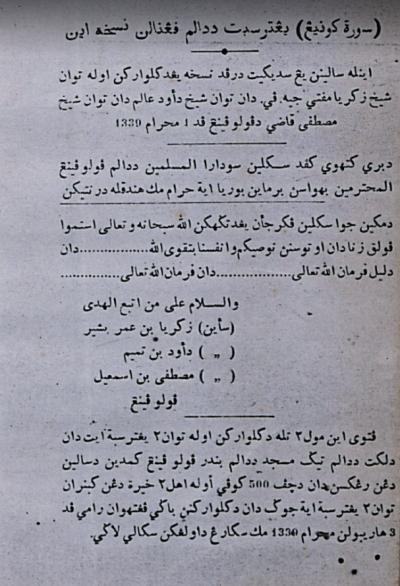 (سورة كونيڠ) يڠترسبت ددالم فڠنالن نسخه اين
اينله سالينن يڠ سديكيت درفد نسخه يڠدكلواركن اوله توان
شيخ زكريا مفتي جبه ڤي. دان توان شيخ داود عالم دان توان شيخ
مصطفى قاضي دڤولو ڤينڠ ڤد 1 محرام 1330
دبري كتهوي كڤد سكلين سودارا المسلمين ددالم ڤولو ڤينڠ
المحترمين بهواسن برماين بوريا ايه حرام مك هندقله دهنتيكن
دمكين جوا سكلين ڤكرجأن يڠدتڬهكن الله سبحانه وتعالى استموا
ڤولق زنا دان او توسنن نوصيكم وانفسنا بتقوى الله...............دان
دليل فرمان الله تعالى...................دان فرمان الله تعالى...............
والسلام على من اتبع الهدى
(سأين) زكريا بن عمر بشير
( „ ) داود بن تميم
( „ ) مصطفى بن اسمعيل
ڤولو ڤينڠ
فتوى اين مول٢ تله دكلواركن اوله توان٢ يڠترسبة ايت دان
دلكت ددالم تيڬ مسجد ددالم بندر ڤولو ڤينڠ كمدين دسالين
دڠن رڠكسن دان دچڤ 500 كوڤي اوله اهل٢ خيرة دڠن كبنران
توان٢ يڠترسبة ايه جوڬ دان دكلواركنن باڬي ڤڠتهوان رامي ڤد
3 هاريبولن محرام 1330 مك سكارڠ داولڠكن سكالي لاڬي.